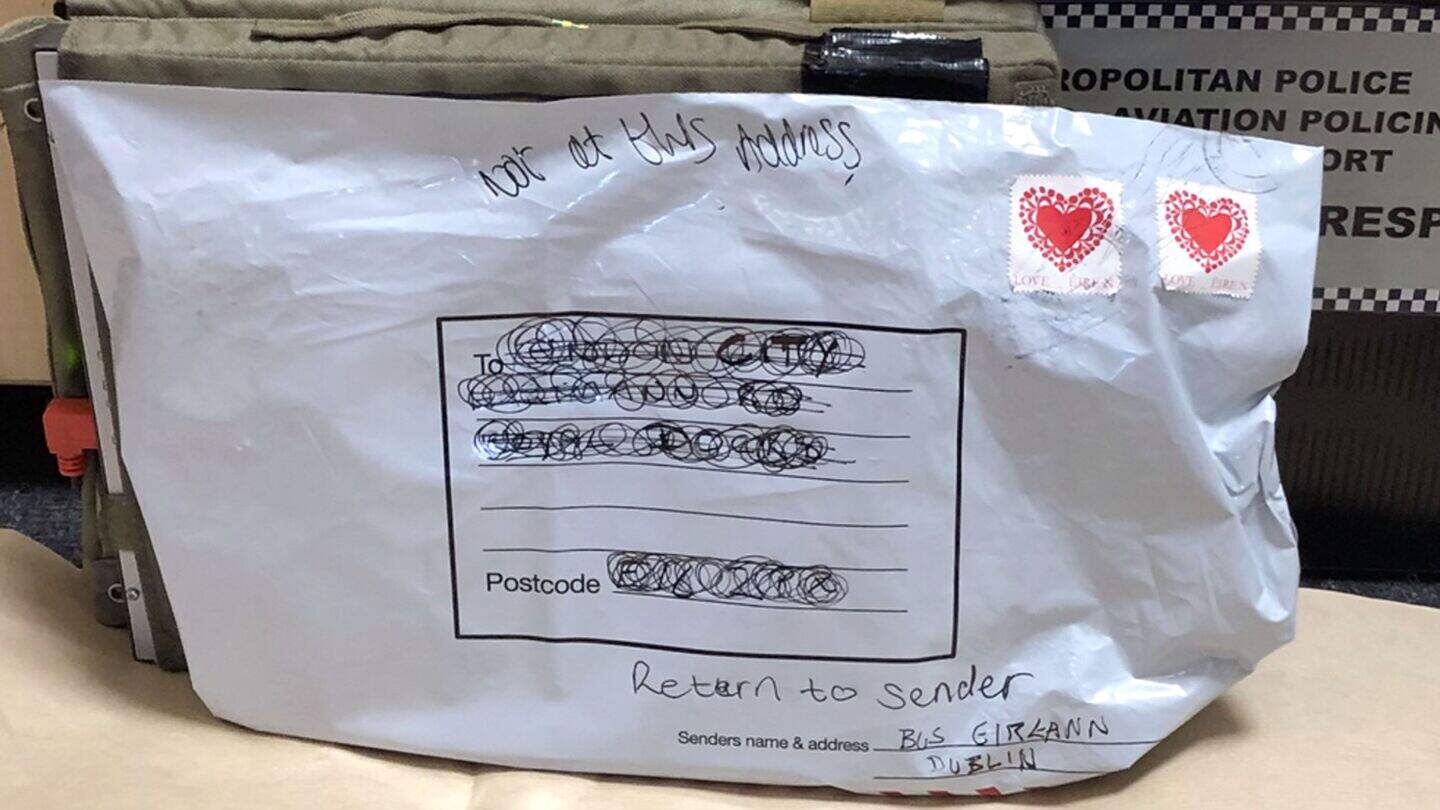 ROPOLITAN POLICE
AVIATION POLICIN
ORT
RESP
Not at this Address
LOVE EIREN
LOVE EIREN
To CITY
Postcode
Return to sender
Senders name & address BUS EIREANN
DUBLIN